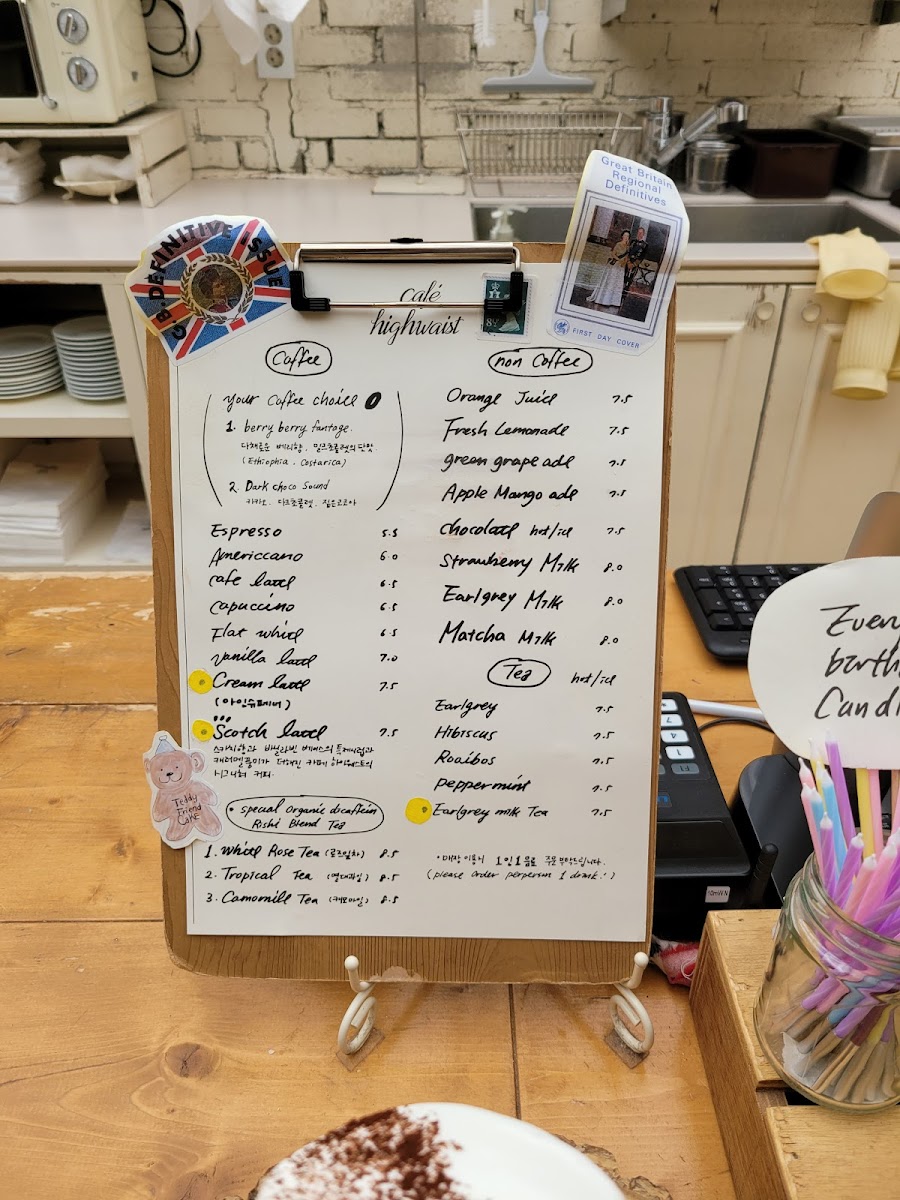 Great Britain
Regional
Definitives
G.B DEFINITIVE ISSUE
FIRST DAY COVER
café
highwaist
8½
Coffee
your Coffee choice
1. berry berry fantage.
다채로운 베리향, 밀크초콜렛의 단맛
(Ethiophia, Costarica)
2. Dark choco Sound
카카오, 다크초콜렛, 짙은고소아
Espresso 5.5
Americcano 6.0
cafe latte 6.5
Capuccino 6.5
Flat white 6.5
Vanilla latte 7.0
Cream latte 7.5
(아인슈페너)
Scotch latte 7.5
스카치향과 바닐라빈 베이스의
카라멜풍미가 더해진 카페 하이웨스트의
시그니쳐 커피.
• special organic decaffein
Rishi Blend Tea
1. White Rose Tea (로즈잎차) 8.5
2. Tropical Tea (열대과일) 8.5
3. Camomille Tea (캐모마일) 8.5
non Coffee
Orange Juice 7.5
Fresh Lemonade 7.5
green grape ade 7.5
Apple Mango ade 7.5
Chocolate hot/ice 7.5
Strawberry Milk 8.0
Earlgrey Milk 8.0
Matcha Milk 8.0
Tea hot/ice
Earlgrey 7.5
Hibiscus 7.5
Rooibos 7.5
Peppermint 7.5
Earlgrey milk Tea 7.5
• 매장 이용시 1인 1음료 주문 부탁드립니다.
(please order perperson 1 drink!)
Teddy
Friend
CAKE
Every
birth
Cand